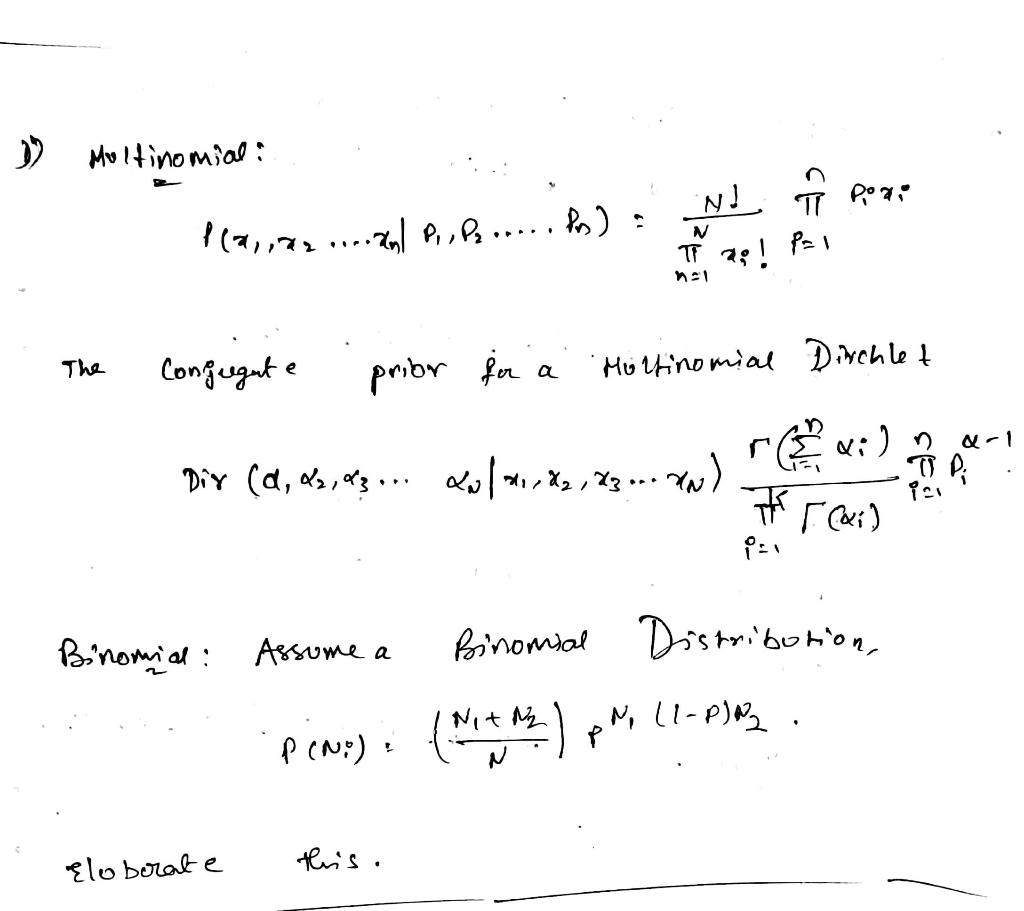 1) Multinomial:
P(x₁, x₂ ..... xₙ | P₁, P₂ ..... Pₙ) = N! / ∏ₙ₌₁ᴺ xᵢ! ∏ₚ₌₁ⁿ Pᵢxᵢ
The Conjugate prior for a Multinomial Dirchlet
Dir (α, α₂, α₃ ... α_N | x₁, x₂, x₃ ... x_N) Γ(∑ᵢ₌₁ⁿ αᵢ) / ∏ᵢ₌₁ᴷ Γ(αᵢ) ∏ᵢ₌₁ⁿ Pᵢ^(α-1)
Binomial: Assume a Binomial Distribution,
P(Nᵢ) = (N₁ + N₂ / N) p^N₁ (1-P)N₂ .
Eloborate this.